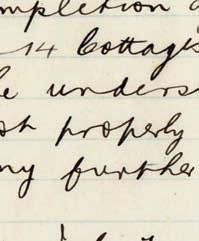 mpletion
14 Cottages
unders
properly
ny further